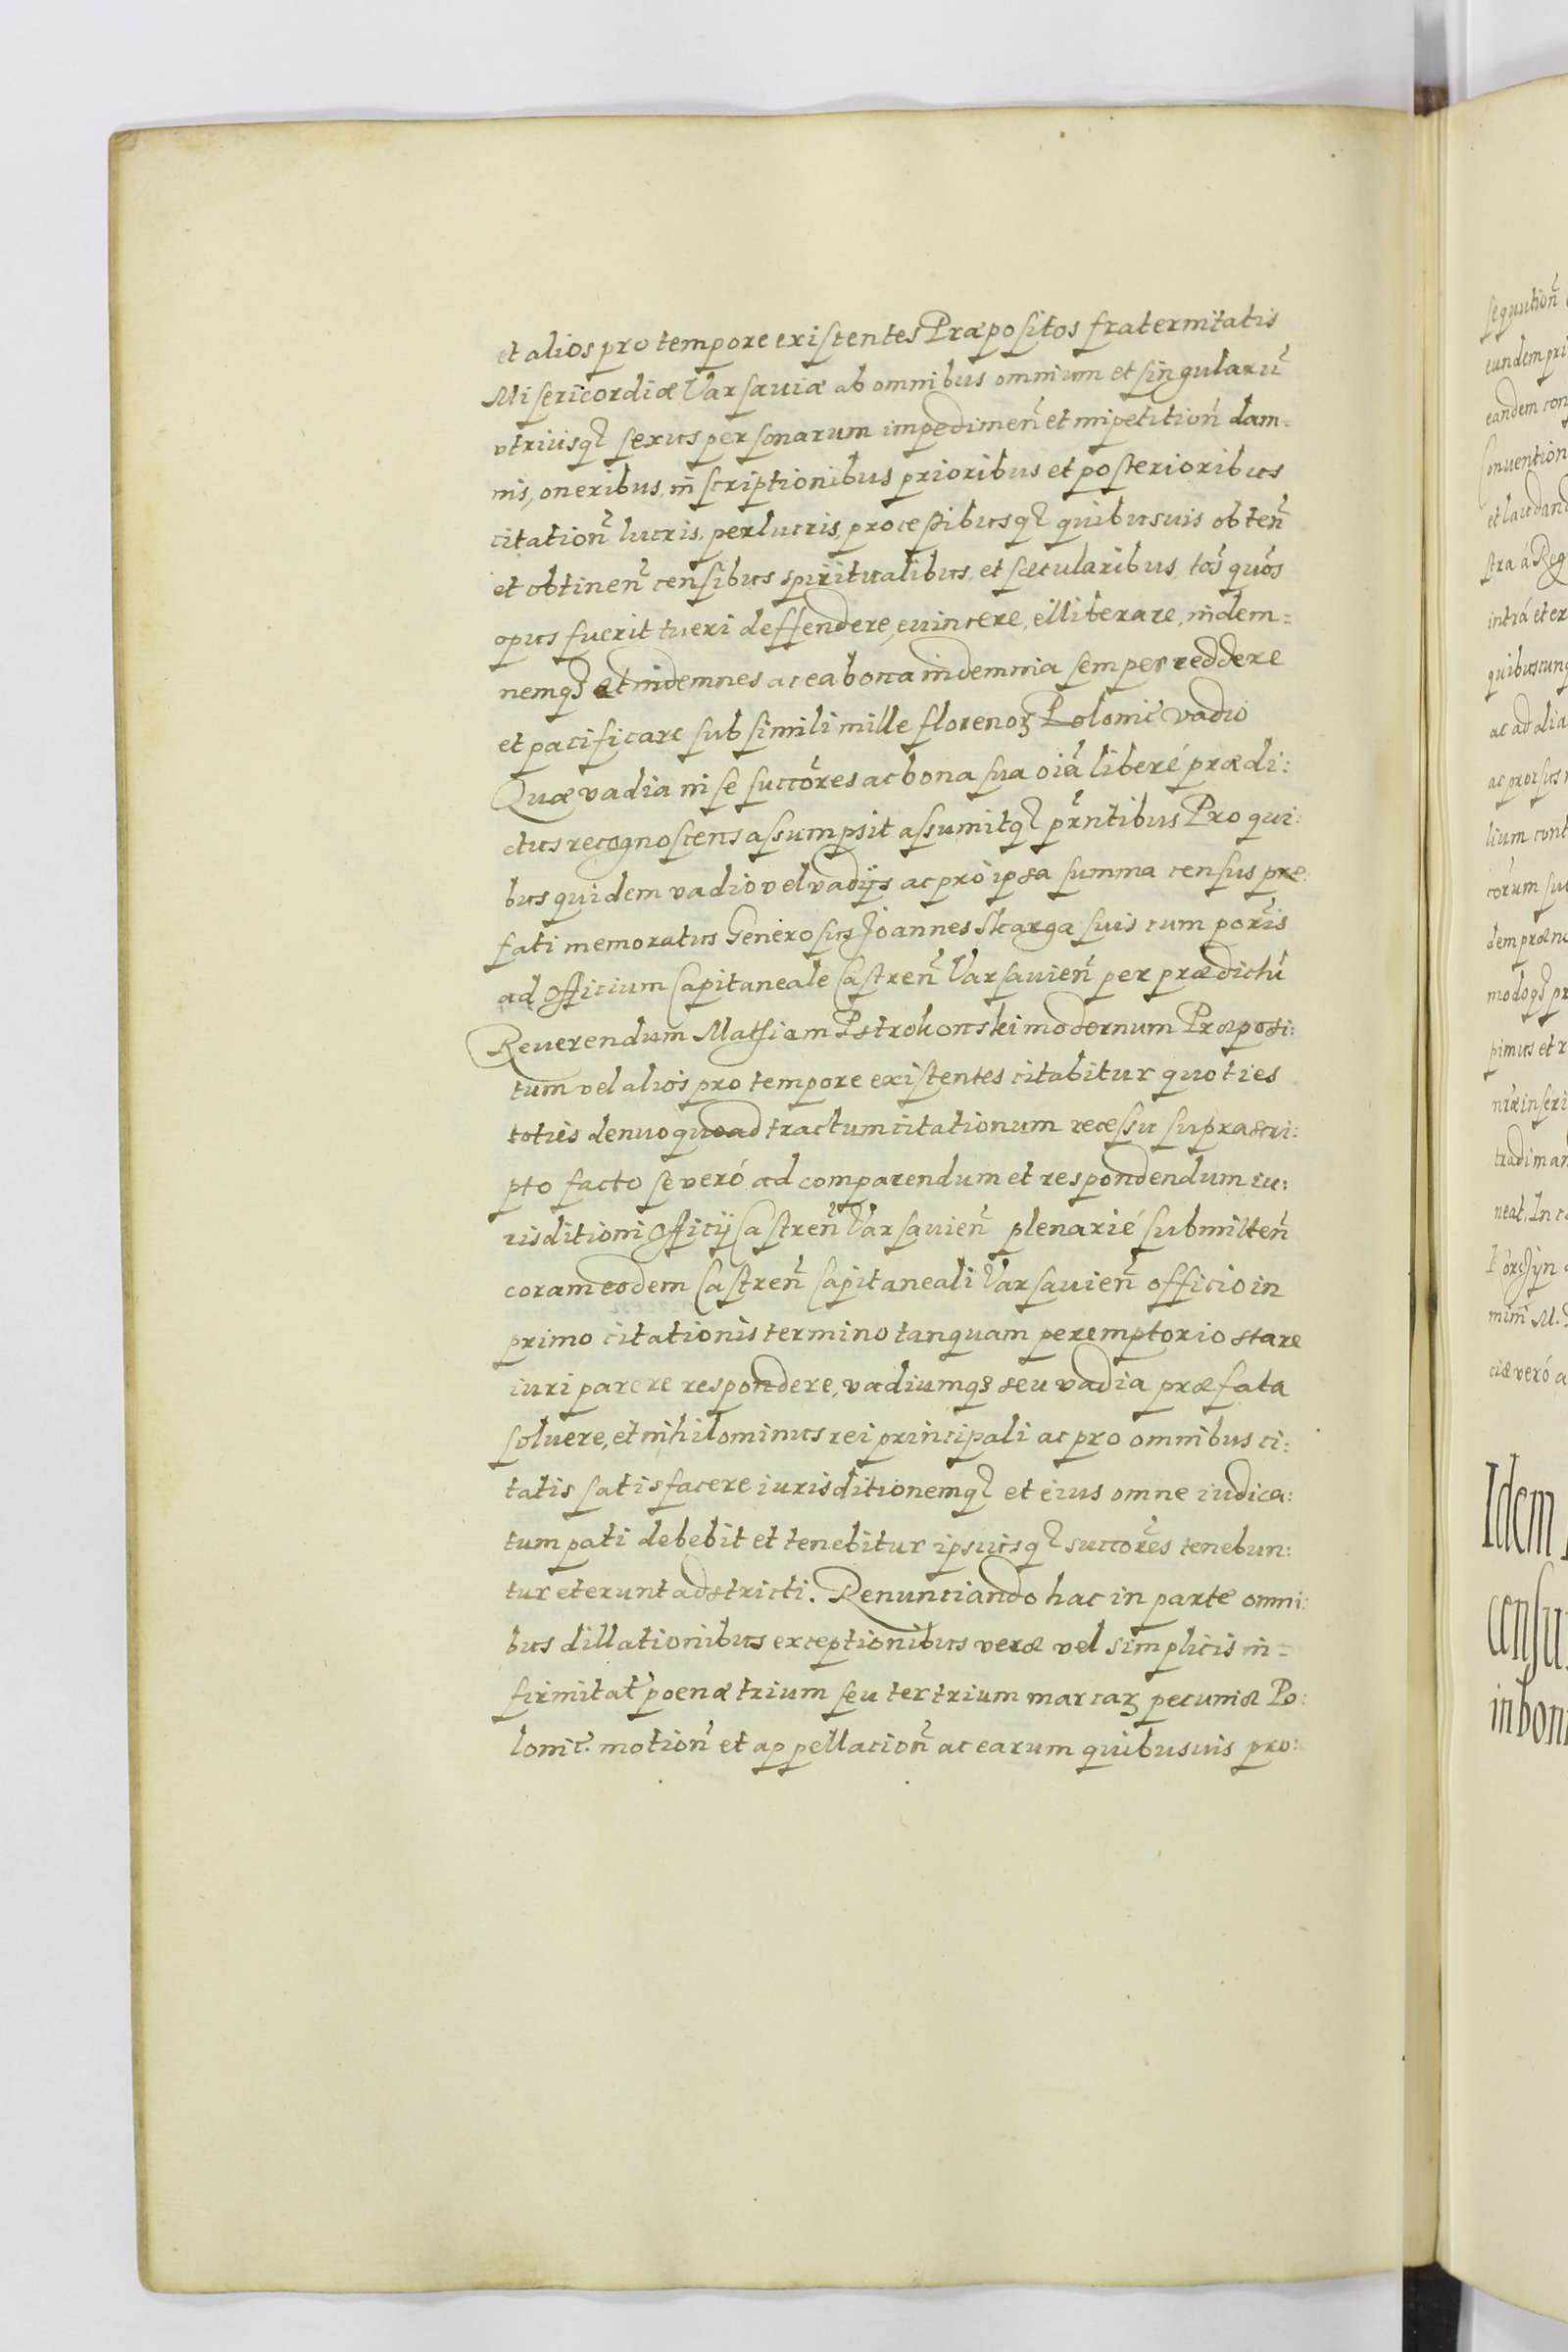 et alios pro tempore existentes Præpositos fraternitatis
Misericordiæ Varsauiæ ab omnibus omnium et singularũ
vtriusqꝫ sexus personarum impedimeñ et impetitioñ dam=
nis, oneribus, in scriptionibus prioribus et posterioribus
citatioñ lucris, perlucris, processibusqꝫ quibusuis obteñ
et obtineñ censibus spiritualibus, et sæcularibus, tos̃ quos̃
opus fuerit tueri deffendere, euincere, elliberare, indem=
nemqꝫ et indemnes ac ea bona indemnia semper reddere
et pacificare sub simili mille florenoꝝ Polonic̃ vadio
Quæ vadia in se succor̃es ac bona sua oiã liberé prædi:
ctus recognoscens assumpsit assumitqꝫ pr̃ntibus Pro qui:
bus quidem vadio vel vadijs ac pro ipsa summa census præ
fati memoratus Generosus Joannes Skarga suis cum por̃is
ad officium Capitaneale Castreñ Varsauieñ per prædictũ
Reuerendum Mathiam Pstrokonski modernum Præposi:
tum vel alios pro tempore existentes citabitur quoties
toties denuo quoad tractum citationum recessu suprascri:
pto facto se veró ad comparendum et respondendum iu:
risditioni Officij Castreñ Varsauieñ plenarié submitteñ
coram eodem Castreñ Capitaneali Varsauieñ officio in
primo citationis termino tanquam peremptorio stare
iuri parere respondere, vadiumqꝫ seu vadia præfata
soluere, et nihilominus rei principali ac pro omnibus ci:
tatis satisfacere iurisditionemqꝫ et eius omne iudica:
tum pati debebit et tenebitur ipsiusqꝫ succor̃es tenebun:
tur et erunt adstricti. Renunciando hac in parte omni:
bus dillationibus exceptionibus veræ vel simplicis in=
firmitat̃ poenæ trium seu ter trium marcaꝝ pecuniæ Po:
lonic̃. motioñ et appellacioñ ac earum quibusuis pro:
sequutioñ
eundem pri
eandem con
Conuention
et laudand
stra á Reg
intrá et ex
quibuscunq
ac ad alia
ac prorsus
lium cont
corum su
dem præno
modoqꝫ pr
pimus et r
nr̃æ inseri
tradi man
neat. In c
ciæ veró a
Idem
censu
in boni